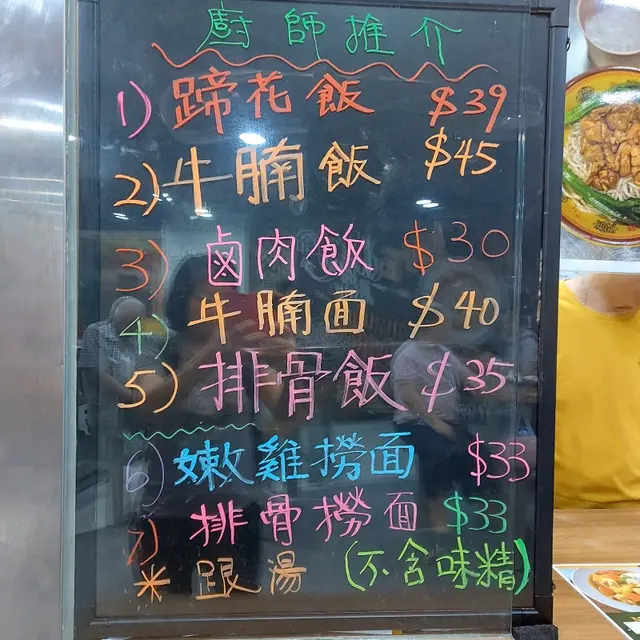 廚師推介
1) 蹄花飯 $39
2) 牛腩飯 $45
3) 鹵肉飯 $30
4) 牛腩面 $40
5) 排骨飯 $35
6) 嫩雞撈面 $33
7) 排骨撈面 $33
* 跟湯 (不含味精)